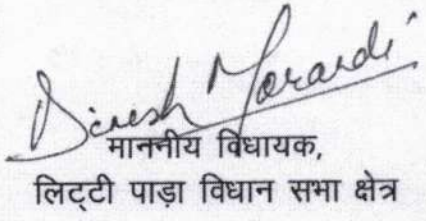 Dinesh Marandi
माननीय विधायक,
लिट्‌टी पाड़ा विधान सभा क्षेत्र